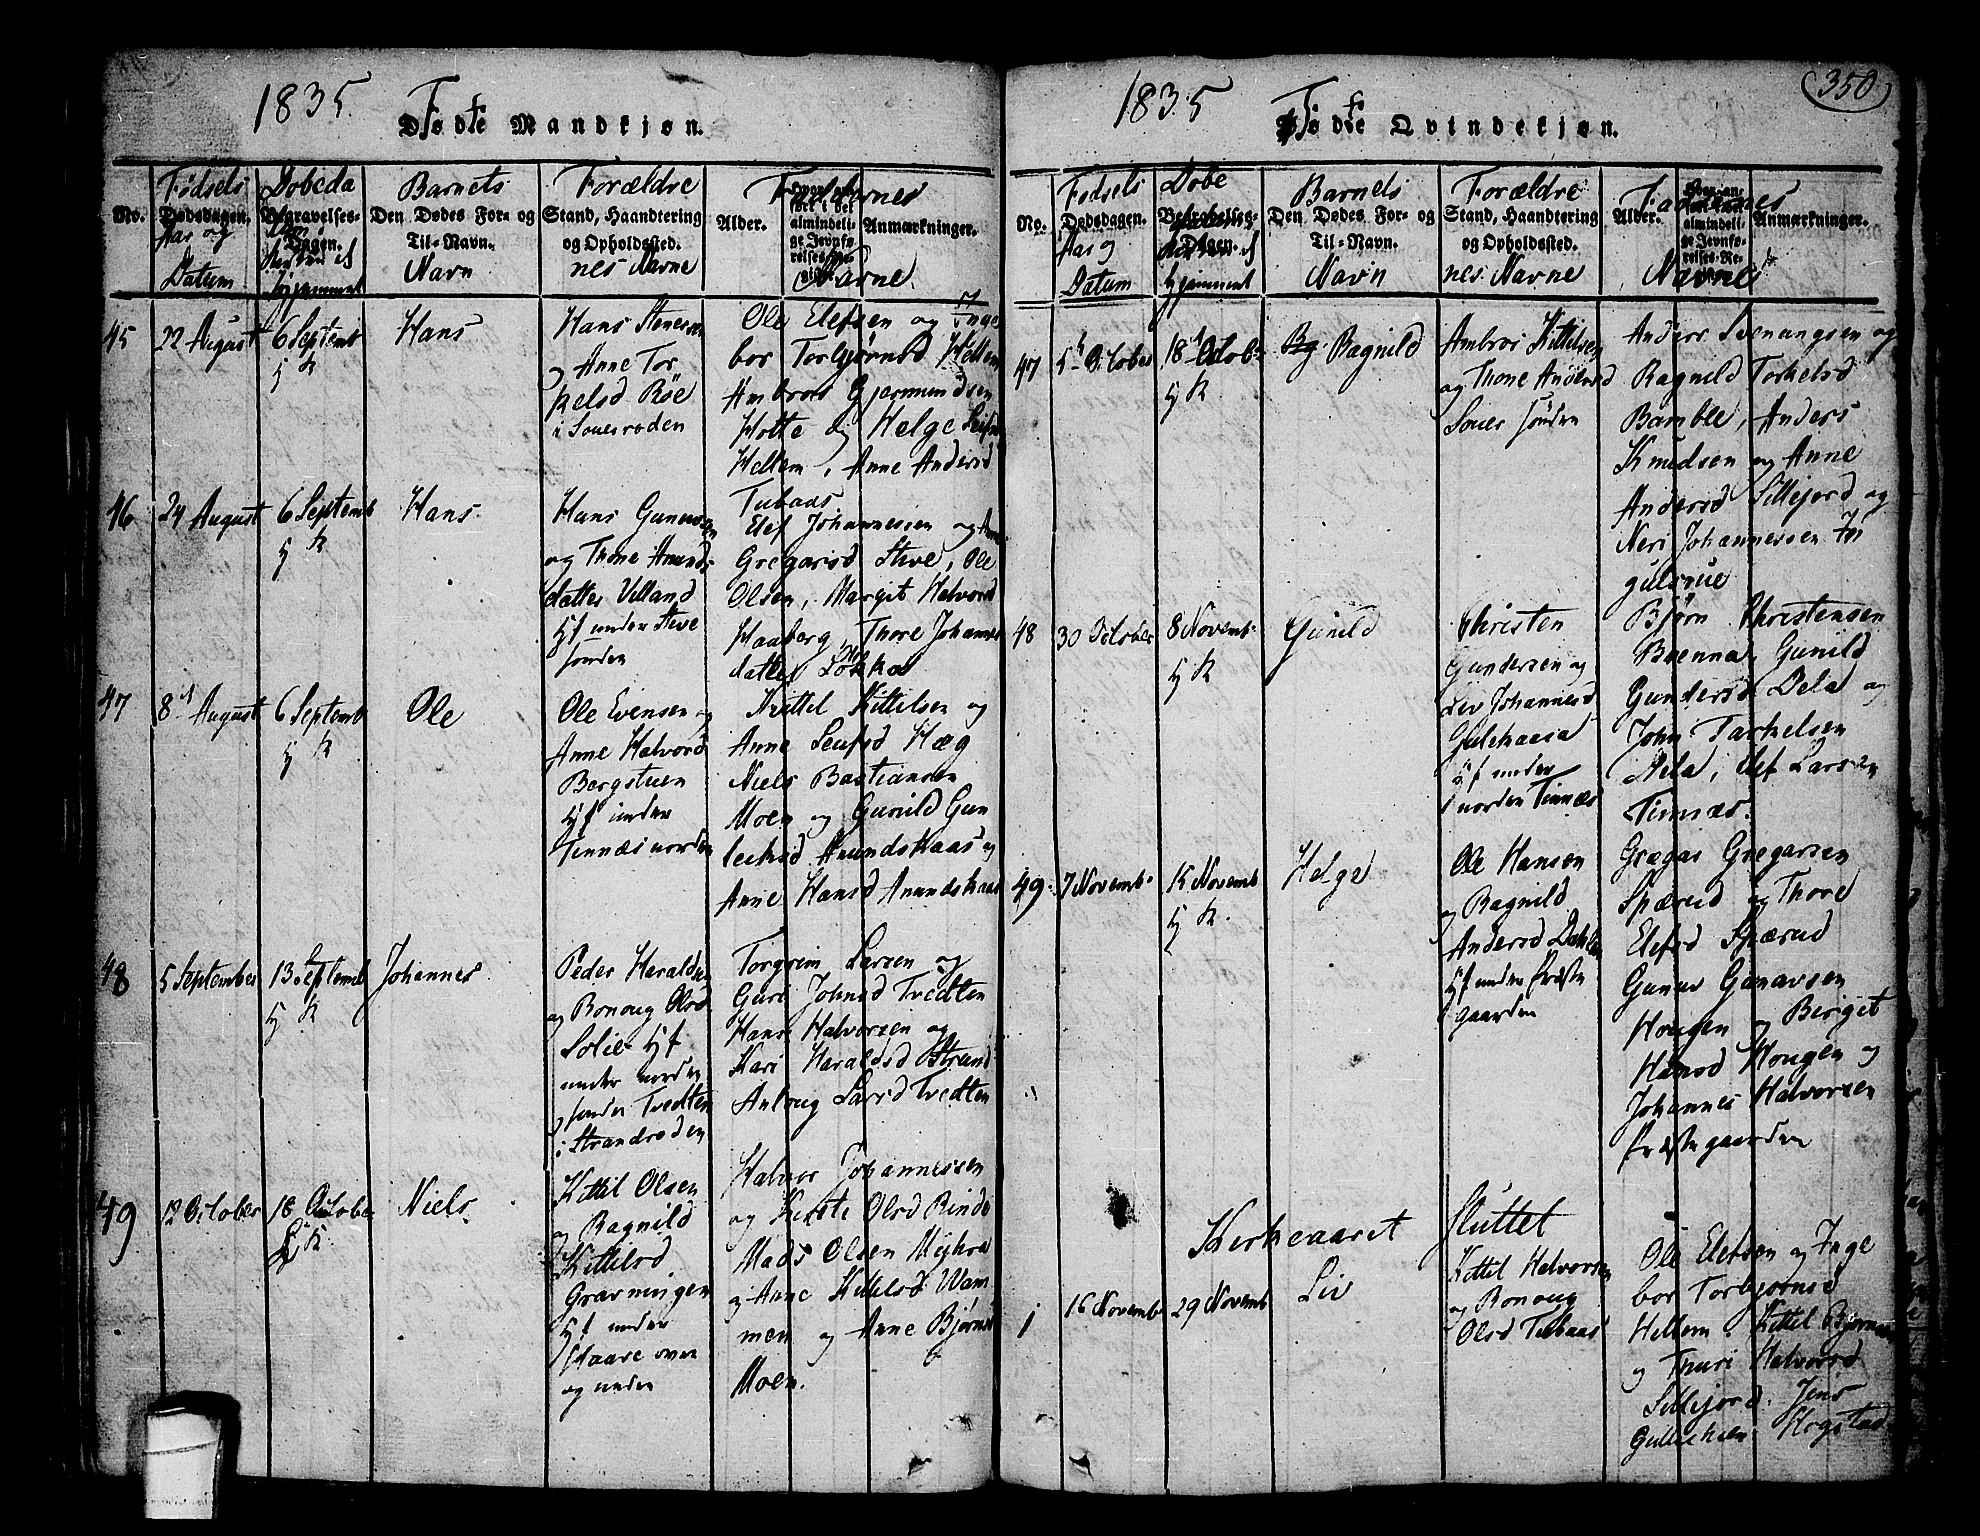 1835
Fødte Mandkjøn.
No.
Fødsels
Dødsdagen.
Aar og
Datum
Døbeda
Begravelses-
Dagen.
hjemmet
Barnets
Den Dødes For- og
Til-Navn.
Navn
Forældre
Stand, Haandtering
og Opholdssted.
nes Navne
Alder.
Faddernes
Anmærkninger.
Navne
45
22 August
6 Septemb
h K
Hans
Hans Stenersen
og Anne Tor
kelsd Røe
i Souesroden
Ole Elefsen og Inge
bor Torbjørnsd Hellem
Ambros Gjermundsen
Holte og Helge
Hellem, Anne Andersd
Tubaas
46
24 August
6 Septemb
h K
Hans
Hans Gunersen
og Thone Amunds
datter Villand
hf under Steve
sønden
Elef Johannessen og
Gregarisd Steve, Ole
Olsen, Margit Halvorsd
Haaberg, Thore Johannes
datter Løkka
47
8d August
6 Septemb
h K
Ole
Ole Evensen og
Anne Halvorsd
Bergstuen
hf under
Tinnæs norden
Kittel Kittilsen og
Anne Leufsd Hæg
Niels Bastiansen
Moen og Gunild Gun
leiksd Anundskaas og
Anne Hansd Anundskaas
48
5 September
13 Septemb
h K
Johannes
Peder Heraldsen
og Ronoug Olsd
Solie hf
under norden
og sønder Tvedten
i Strandroden
Torgrim Larsen og
Guri Johnsd Tvedten
Hans Halvorsen og
Kari Haraldsd Strand
Antoug Larsd Tvedten
49
12 October
18 October
h K
Niels
Kittil Olsen
og Ragnild
Kittilsd
Gravningen
hf under
Haave over
og under
Halvor Johannessen
og Kirste Olsd Rinde
Mads Olsen Myhra
og Anne Kittilsd Wam
men og Anne Bjørnsd
Moen.
1835
Fødte Qvindekjøn.
350
No.
Fødsels
Dødsdagen.
Aar og
Datum
Døbe
Begravelses-
Dagen.
hjemmet
Barnets
Den Dødes For- og
Til-Navn.
Navn
Forældre
Stand, Haandtering
og Opholdssted.
nes Navne
Alder.
Faddernes
Anmærkninger.
Navne
47
5te October
18d Octob
h K
Rg. Ragnild
Ambros Kittilsen
og Thone Andersd
Soues sønden
Anders Svenungsen og
Ragnild Torkelsd
Bamble, Anders
Knudsen og Anne
Andersd Sillejord og
Neri Johannessen
gulsrue
48
30 October
8 Novemb
h K
Gunild
Christen
Gundersen og
Liv Johannesd
Gulekaasa
hf under
norden Tinnæs
Bjørn Christensen
Brenna, Gunild
Gundersd Dela og
John Tarkelsen
Nela, Elef Larsen
Tinnæs.
49
7 Novemb
15 Novemb
h K.
Helge
Ole Hansen
og Ragnild
Andersd Dahlen
hf under Præste
gaarden
Grægas Gregarsen
Spærud og Thore
Elefsd Spærud
Gunuv Gunavsen
Hougen og Birget
Hansd Hougen og
Johannes Halvorsen
Præstegaarden
Kirkeaaret sluttet
1
16 Novemb
29 Novemb
Liv
Kittil Halvorsen
og Ronoug
Olsd Tubaas
Ole Elefsen og Inge
bor Torbjørnsd
Hellem. Kittil Bjørnsen
og Turi Halvorsd
Sillejord. Jens
Gulleiksen Hogstad